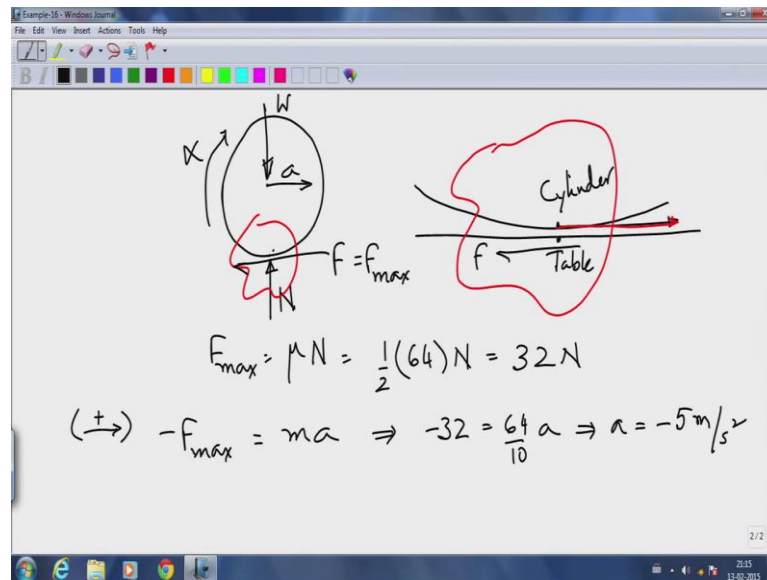 Example-16 - Windows Journal
File Edit View Insert Actions Tools Help
B I
W
α
a
Cylinder
F = Fmax
f
Table
N
Fmax = μN = 1/2 (64) N = 32 N
(+→) -Fmax = ma ⇒ -32 = 64/10 a ⇒ a = -5 m/s²
2/2
21:15
13-02-2015